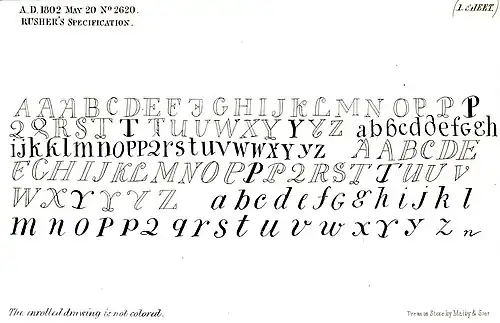 A.D. 1802 MAY 20 Nº 2620.
RUSHER'S SPECIFICATION.
(1. SHEET.)
A A A B C D E E F F G H I J K L M N O P P P
Q Q R S T T T T U U V W X Y Y Y Z Z a b b c d d e f G g h
i j k k l m n o p p q r s t u v w w x y y z A A B C D E
E G H I J K L M N O P P P Q R S T T T U U V
W X Y Y Y Y Z a b c d e f G g h i j k l
m n o p p q q r s t u v w x y y z n
The enrolled drawing is not colored.
Drawn on Stone by Malby & Sons